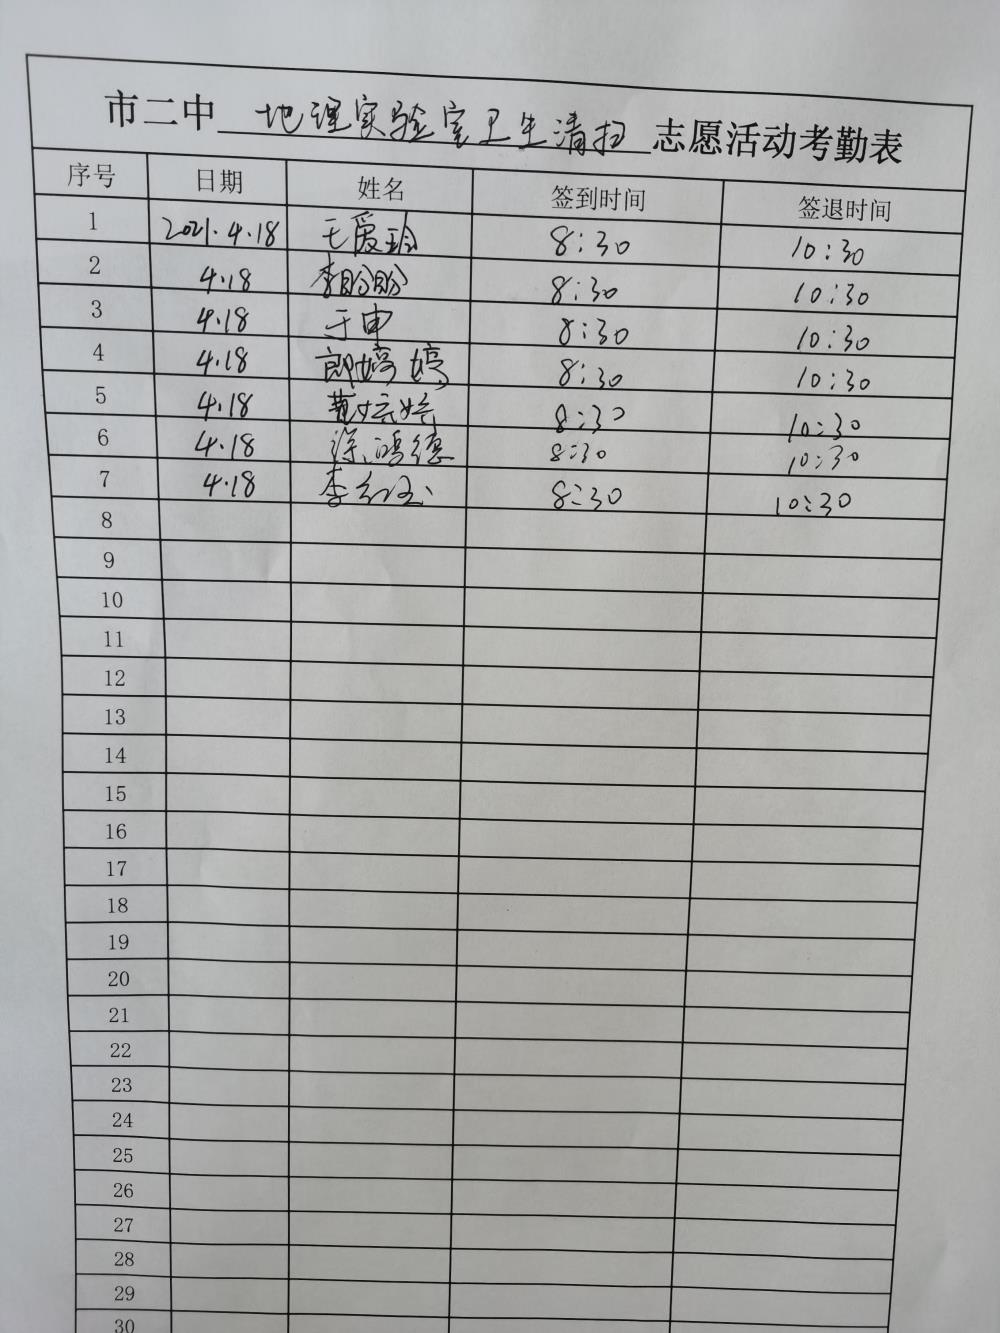 市二中 地理实验室卫生清扫 志愿活动考勤表
序号 日期 姓名 签到时间 签退时间
1 2021.4.18 王爱玲 8:30 10:30
2 4.18 李盼盼 8:30 10:30
3 4.18 于申 8:30 10:30
4 4.18 郎婷婷 8:30 10:30
5 4.18 8:30 10:30
6 4.18 徐鸿德 8:30 10:30
7 4.18 李 8:30 10:30
8
9
10
11
12
13
14
15
16
17
18
19
20
21
22
23
24
25
26
27
28
29
30